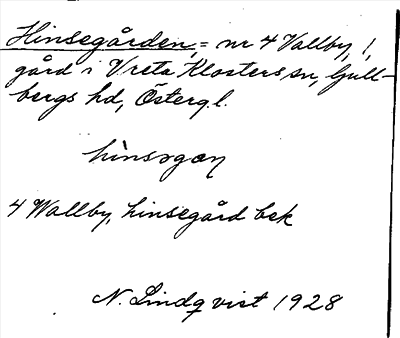 Hinsegården, = nr 4 Vallby, 1,
gård i Vreta Klosters sn, Gull-
bergs hd, Östergl.
hinsəgɑn
4 Wallby, hinsegård bek
N. Lindqvist 1928